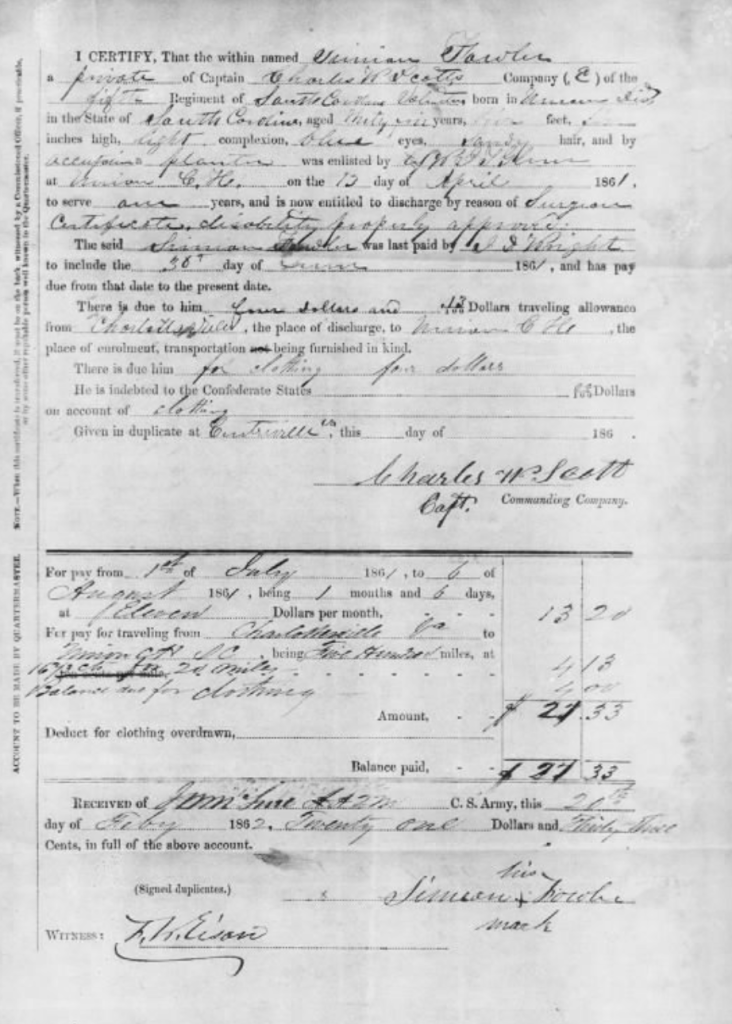 I CERTIFY, That the within named Simion Fowler
a private of Captain Charles W Scotts Company ( E ) of the
fifth Regiment of South Carolina Volunteers born in Union Dis,
in the State of South Carolina, aged thirty years, feet,
inches high, light complexion, blue eyes, sandy hair, and by
occupation planter was enlisted by
at Union C. H. on the 13 day of April 1861,
to serve one years, and is now entitled to discharge by reason of Surgeon
Certificate, disability properly approved.
The said Simion Fowler was last paid by J D Wright
to include the 30th day of June 1861, and has pay
due from that date to the present date.
There is due to him four dollars and Dollars traveling allowance
from Charlottesville, the place of discharge, to Union C H, the
place of enrolment, transportation not being furnished in kind.
There is due him for clothing four dollars
He is indebted to the Confederate States Dollars
on account of clothing
Given in duplicate at Centreville Va, this day of 186 .
Charles W Scott
Capt. Commanding Company.
For pay from 1st of July 1861, to 6 of
August 1861, being 1 months and 6 days,
at Eleven Dollars per month, - - - 13 20
For pay for traveling from Charlottesville Va to
Union C H S C, being Five Hundred miles, at
20 miles - - - - - 4 13
Balance due for clothing 4 00
Amount, - - $ 21 33
Deduct for clothing overdrawn,
Balance paid, - - $ 21 33
RECEIVED of C. S. Army, this 20th
day of Feby 1862, Twenty one Dollars and Thirty Three
Cents, in full of the above account.
his
(Signed duplicates.) Simeon x Fowler
mark
WITNESS:
NOTE.—When this certificate is transferred, it must be on the back, witnessed by a Commissioned Officer, if practicable,
or by some other reputable person well known to the Quartermaster.
ACCOUNT TO BE MADE BY QUARTERMASTER.